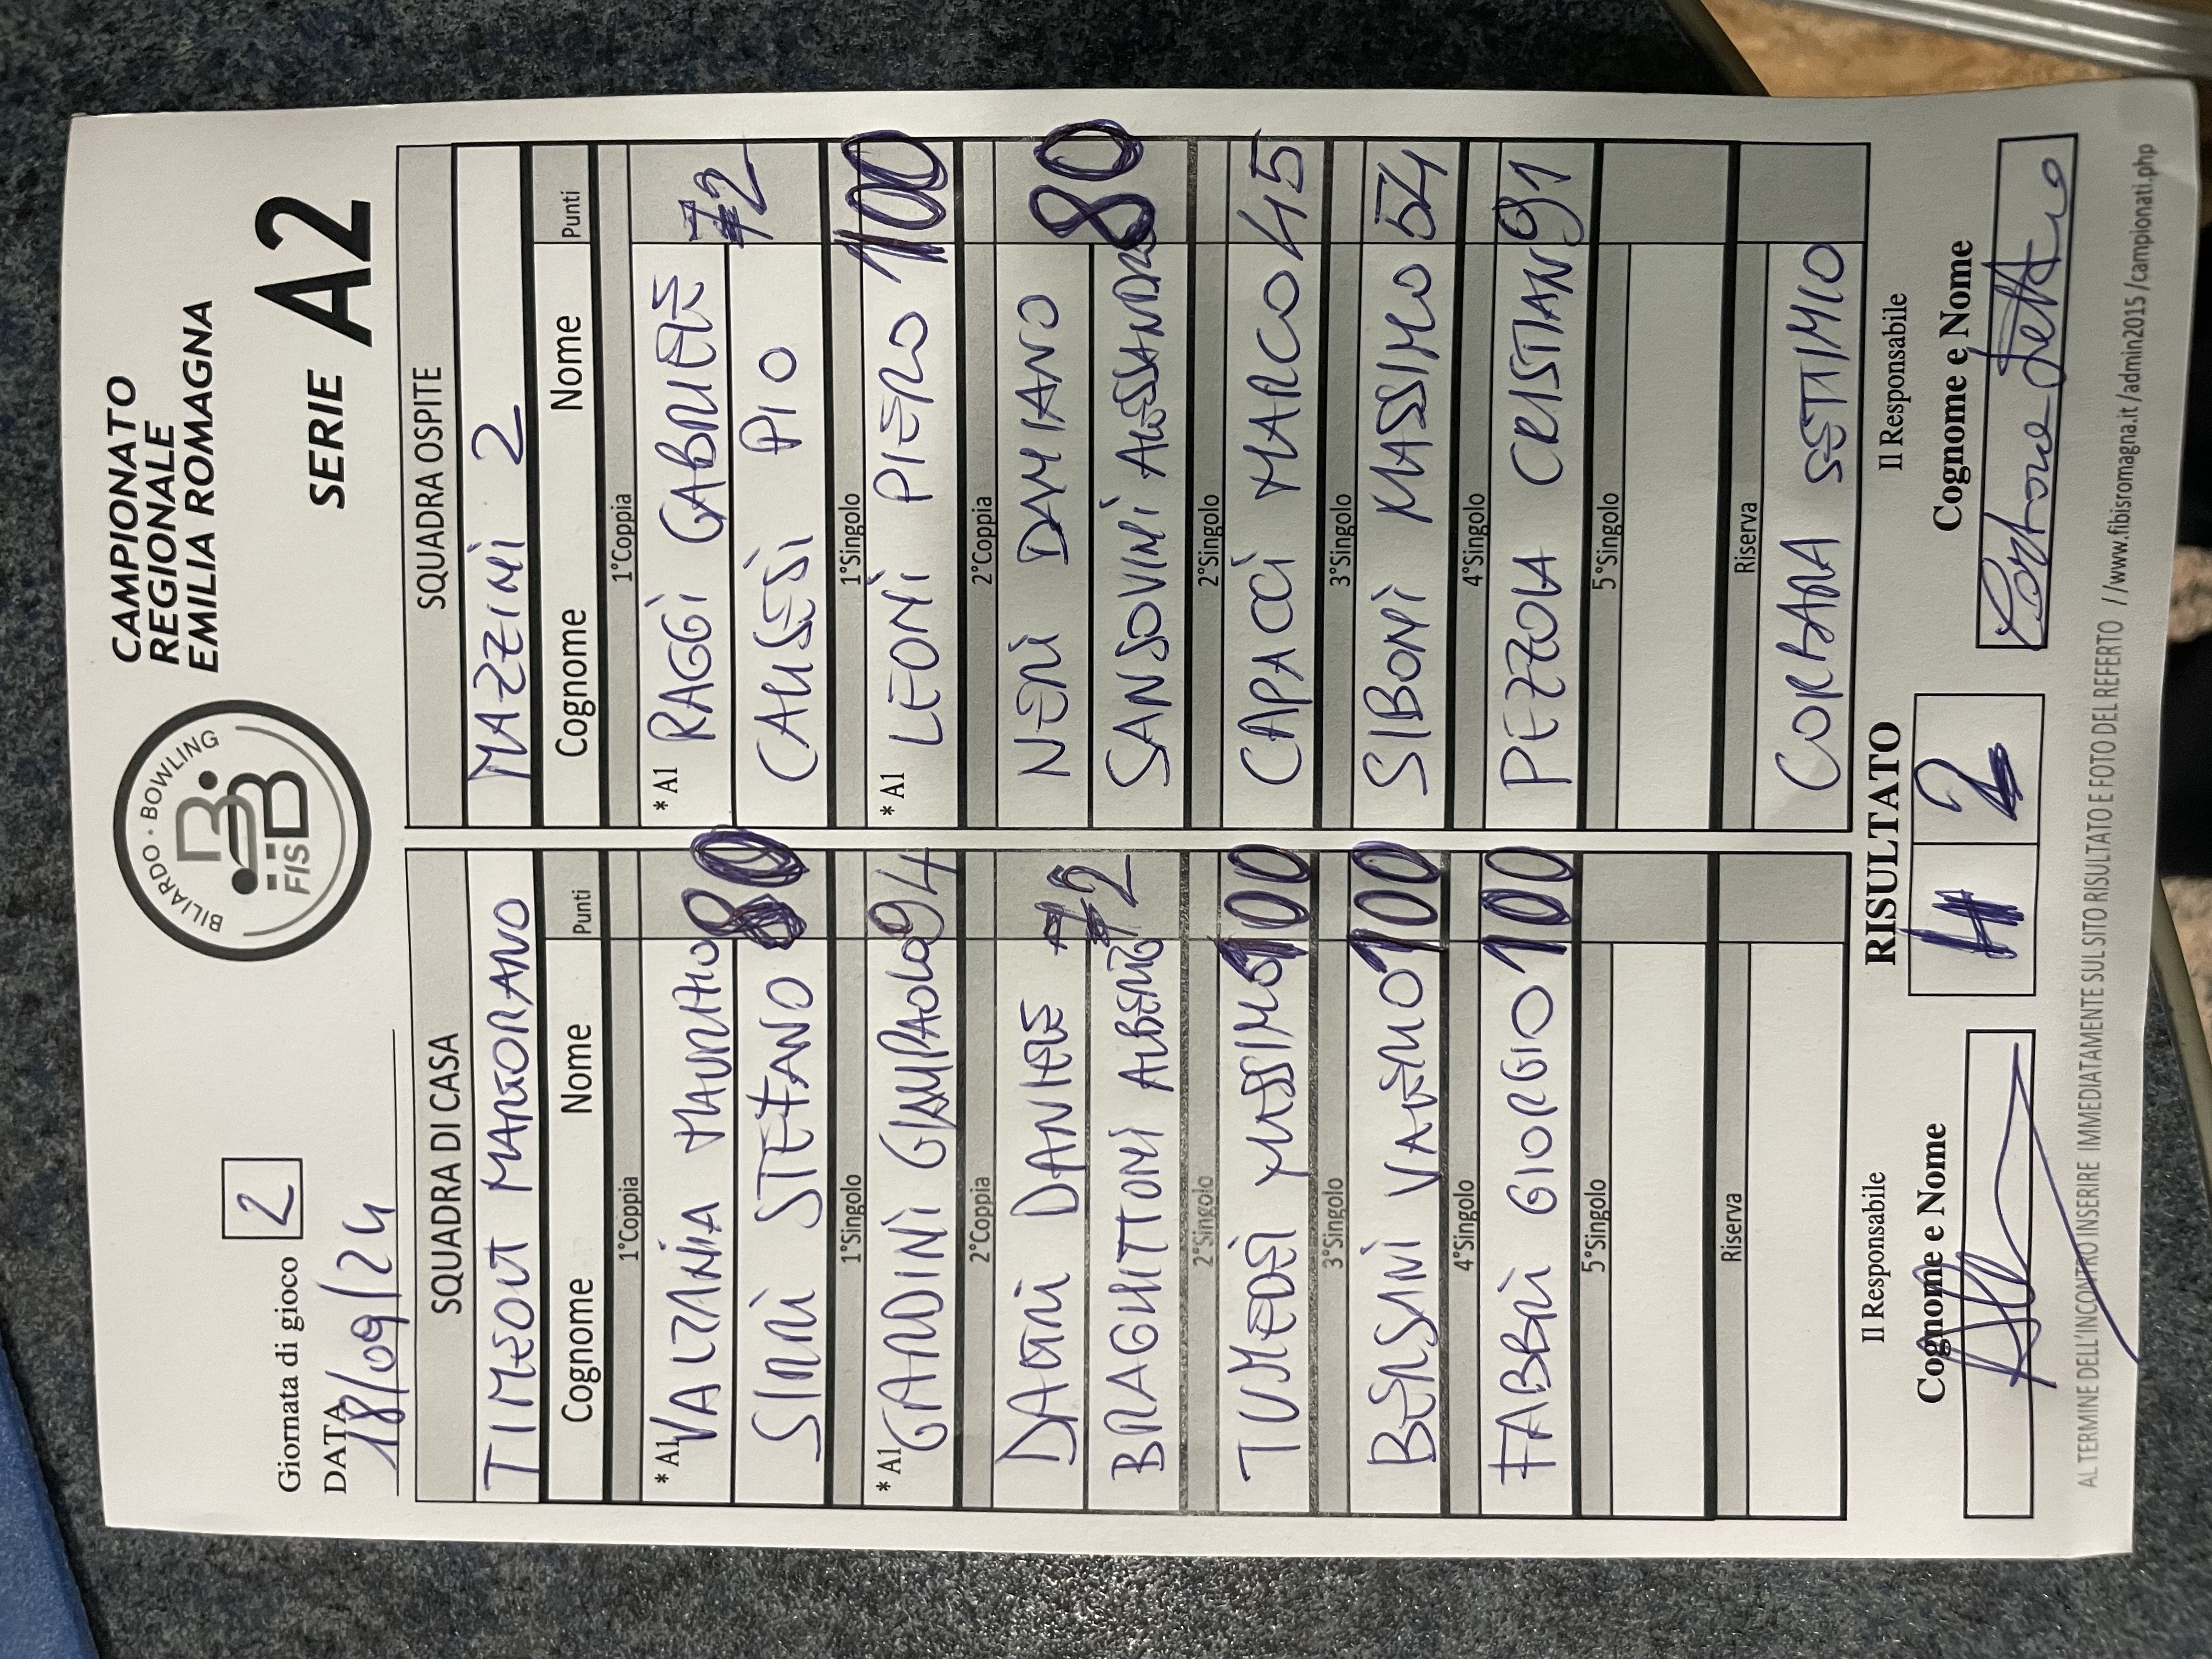 BILIARDO · BOWLING
FISBB
CAMPIONATO
REGIONALE
EMILIA ROMAGNA
Giornata di gioco 2
SERIE A2
DATA 18/09/24
SQUADRA DI CASA
SQUADRA OSPITE
TIMEOUT MARGORANO
MAZZINI 2
Cognome Nome Punti
Cognome Nome Punti
1°Coppia
1°Coppia
*A1 VALZANIA MAURIZIO 80
*A1 RAGGI GABRIELE 72
SIRRI STEFANO
CALISESI PIO
1°Singolo
1°Singolo
*A1 GANDINI GIAMPAOLO 94
*A1 LEONI PIERO 100
2°Coppia
2°Coppia
DANIELE 72
NERI DAMIANO 80
BRAGHITTONI ALBERTO
SANSOVINI ALESSANDRO
2°Singolo
2°Singolo
TUMEDEI MASSIMO 100
CAPACCI MARCO 45
3°Singolo
3°Singolo
BERSANI VALERIO 100
SIBONI MASSIMO 54
4°Singolo
4°Singolo
FABBRI GIORGIO 100
PEZZOLA CRISTIAN 91
5°Singolo
5°Singolo
Riserva
Riserva
CORBARA SETTIMIO
Il Responsabile
RISULTATO
Il Responsabile
Cognome e Nome
4 2
Cognome e Nome
AL TERMINE DELL'INCONTRO INSERIRE IMMEDIATAMENTE SUL SITO RISULTATO E FOTO DEL REFERTO //www.fibisromagna.it/admin2015/campionati.php